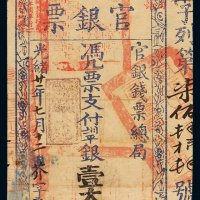 官銀票
字列第柒佰拾號
官銀錢票總局
憑票支付銀壹大
光緒廿年七月